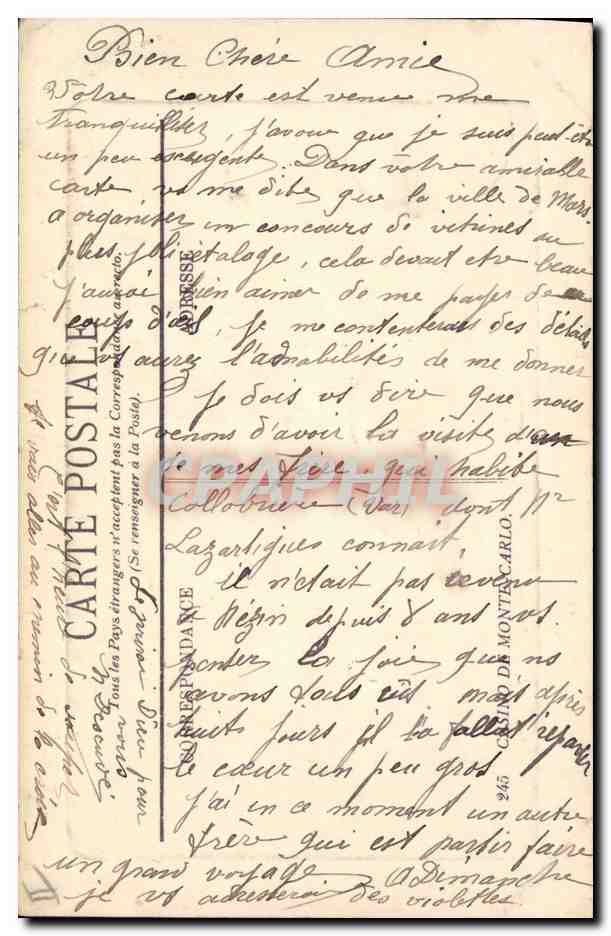 Bien Chère Amie
Votre carte est venue me
tranquilliser, j'avoue que je suis peut-êt
un peu exigente. Dans vôtre amirable
carte vs me dite que la ville de Mars.
a organiser un concours de vitrines au
plus joli étalage, cela devait etre beau
j'aurai bien aimer de me payer de
coup d'œil, je me contenterai des détails
que vs aurez l'admabilités de me donner
Je dois vs dire que nous
venons d'avoir la visite d'un
de mes frère, qui habite
Collobriere (Var) dont Mr
Lazartigues connait,
il n'était pas revenu
a Nézin depuis 8 ans vs.
penser la joie que ns
avons tous eûs mais après
huit jours il l'a fallut repartir
le cœur un peu gros
J'ai en ce moment un autre
frère qui est partir faire
un grand voyage A Dimanche
je vs adresserai des violettes.
Le mien pour
vous
Je vais aller au chemin de la
CARTE POSTALE
Tous les Pays étrangers n'acceptent pas la Correspondance au recto.
(Se renseigner à la Poste).
CORRESPONDANCE
ADRESSE
245 CASINO DE MONTE-CARLO.
CPAPHIL
II